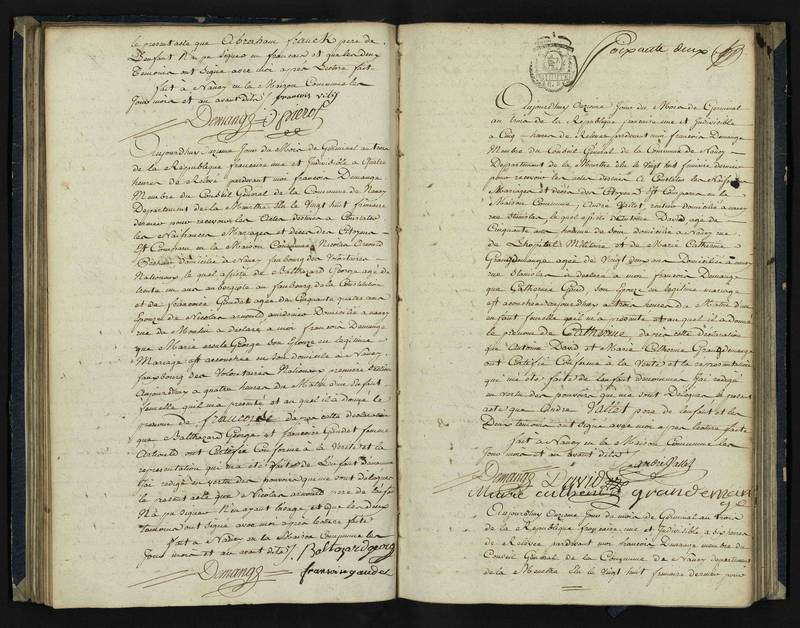 le present acte que Abraham franck pere de
L'enfant N'a pu signer en francois et que les deux
Temoins ont signé avec moi après Lecture faite
fait à Nancy en la Maison Commune les
Jours mois et an avant dits
Demange
Aujourdhuy onzieme Jour du Mois de Germinal au trois
de la République francoise une et Indivisible a quatre
heures de Relevé pardevant moi francois Demange
Membre du Conseil General de la Commune de Nancy
Departement de la Meurthe Elu le Vingt huit frimaire
dernier pour recevoir les actes destinés a Constater
les Naissances Mariages et décès des Citoyens
Est Comparu en la Maison Commune Nicolas
domicilié a Nancy faubourg des Volontaires
Nationaux lequel assisté de Balthazard George agé de
trente un ans aubergiste au faubourg de la Constitution
et de francoise Gaudet agée de Cinquante quatre ans
Epouze de Nicolas Domiciliée a Nancy
rue du Moulin a déclaré a moi francois Demange
que Marie George son Epouze en légitime
Mariage est accouchée en son domicile a Nancy
fauxbourg des Volontaires Nationaux premiere Section
Aujourdhuy a quatre heures du Matin d'un Enfant
femelle qu'il m'a présenté et auquel il a donné le
prenom de francoise d'après cette déclaration
que Balthazard George et francoise Gaudet femme
ont Certifié Conforme a la Verité et la
représentation qui m'a été faite de L'enfant
J'ai redigé en vertu des pouvoirs qui me sont délégués
le present acte que Nicolas pere de l'enfant
N'a pu signer N'en ayant l'usage et que les deux
Temoins ont signé avec moi apres lecture faite
fait a Nancy en la Maison Commune les
Jours mois et an avant dits Baltazard george
Demange francoise gaudet
deux
Aujourdhuy onzieme Jour du Mois de Germinal
au trois de la République francoise une et Indivisible
a Cinq heures de Relevé pardevant moi francois Demange
Membre du Conseil General de la Commune de Nancy
Departement de la Meurthe Elu le Vingt huit frimaire dernier
pour recevoir les actes destinés a Constater les Naissances
Mariages et décès des Citoyens Est Comparu en la
Maison Commune André Vallet domicilié a Nancy
rue Stanislas lequel assisté d'Antoine David agé de
Cinquante ans domicilié a Nancy rue
de L'hopital Militaire et de Marie Catherine
Grandemange agée de Vingt deux ans Domiciliée a Nancy
rue Stanislas a déclaré a moi francois Demange
que Catherine son Epouze en légitime mariage
est accouchée aujourdhuy a trois heures du Matin d'un
enfant femelle qu'il m'a présenté et auquel il a donné
le prénom de Catherine d'après cette déclaration
que Antoine David et Marie Catherine Grandemange
ont Certifié Conforme a la Verité et la représentation
qui m'a été faite de L'enfant J'ai redigé
en vertu des pouvoirs qui me sont Délégués le present
acte que André Vallet pere de l'enfant et les
Deux temoins ont signé avec moi apres lecture faite
fait a Nancy en la Maison Commune les
Jours mois et an avant dits
andré Vallet
Demange David
Marie catherine grandemange
Aujourdhuy onzieme Jour du mois de Germinal au trois
de la République francoise une et Indivisible a six heures
de Relevée pardevant moi francois Demange membre du
Conseil General de la Commune de Nancy departement
de la Meurthe Elu le Vingt huit frimaire dernier pour